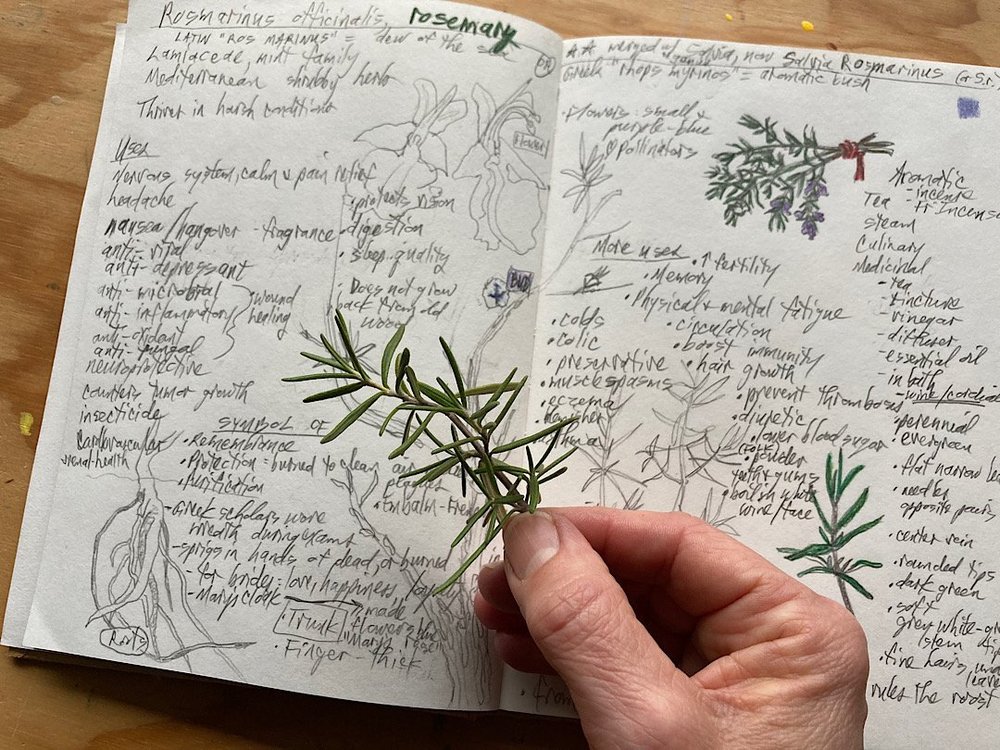 Rosmarinus officinalis, rosemary
LATIN "ROS MARINUS" = dew of the sea
Lamiaceae, mint family
Mediterranean shrubby herb
Thrives in harsh conditions
Uses
Nervous system, calm & pain relief
headache
nausea/hangover - fragrance
anti-viral
anti-depressant
anti-microbial
anti-inflammatory
anti-oxidant
anti-fungal
wound
healing
neuroprotective
counters tumor growth
insecticide
Cardiovascular
renal-health
• protects vision
• digestion
• sleep quality
• Does not grow
back from old
wood
Flower
BUD
SYMBOL OF
• Remembrance
• Protection = burned to clean air
• Purification
• Greek scholars wore
wreath during exams
- sprigs in hands of dead, or burned
- for brides: love, happiness
- Mary's cloak
made
flowers blue
Trunk
• Finger-thick
Roots
merged w/ Salvia, now Salvia Rosmarinus
Greek "rhops myrinos" = aromatic bush
• Flowers: small &
purple-blue
♡ Pollinators
More uses
• ↑ fertility
• Memory
• Physical & mental fatigue
• colds
• colic
• preservative
• muscle spasms
• eczema
• circulation
• boost immunity
• hair growth
• prevent thrombosis
• diuretic
• lower blood sugar
• powder
teeth & gums
• boil in white
wine/face
Aromatic
- incense
Tea
Steam
Culinary
Medicinal
- tea
- tincture
- vinegar
- diffuser
- essential oil
- in bath
- wine/cordial
• perennial
• evergreen
• flat narrow
• needles
opposite pairs
• center vein
• rounded tips
• dark green
• soft
grey white-
(stem
• fine hairs
rules the roost